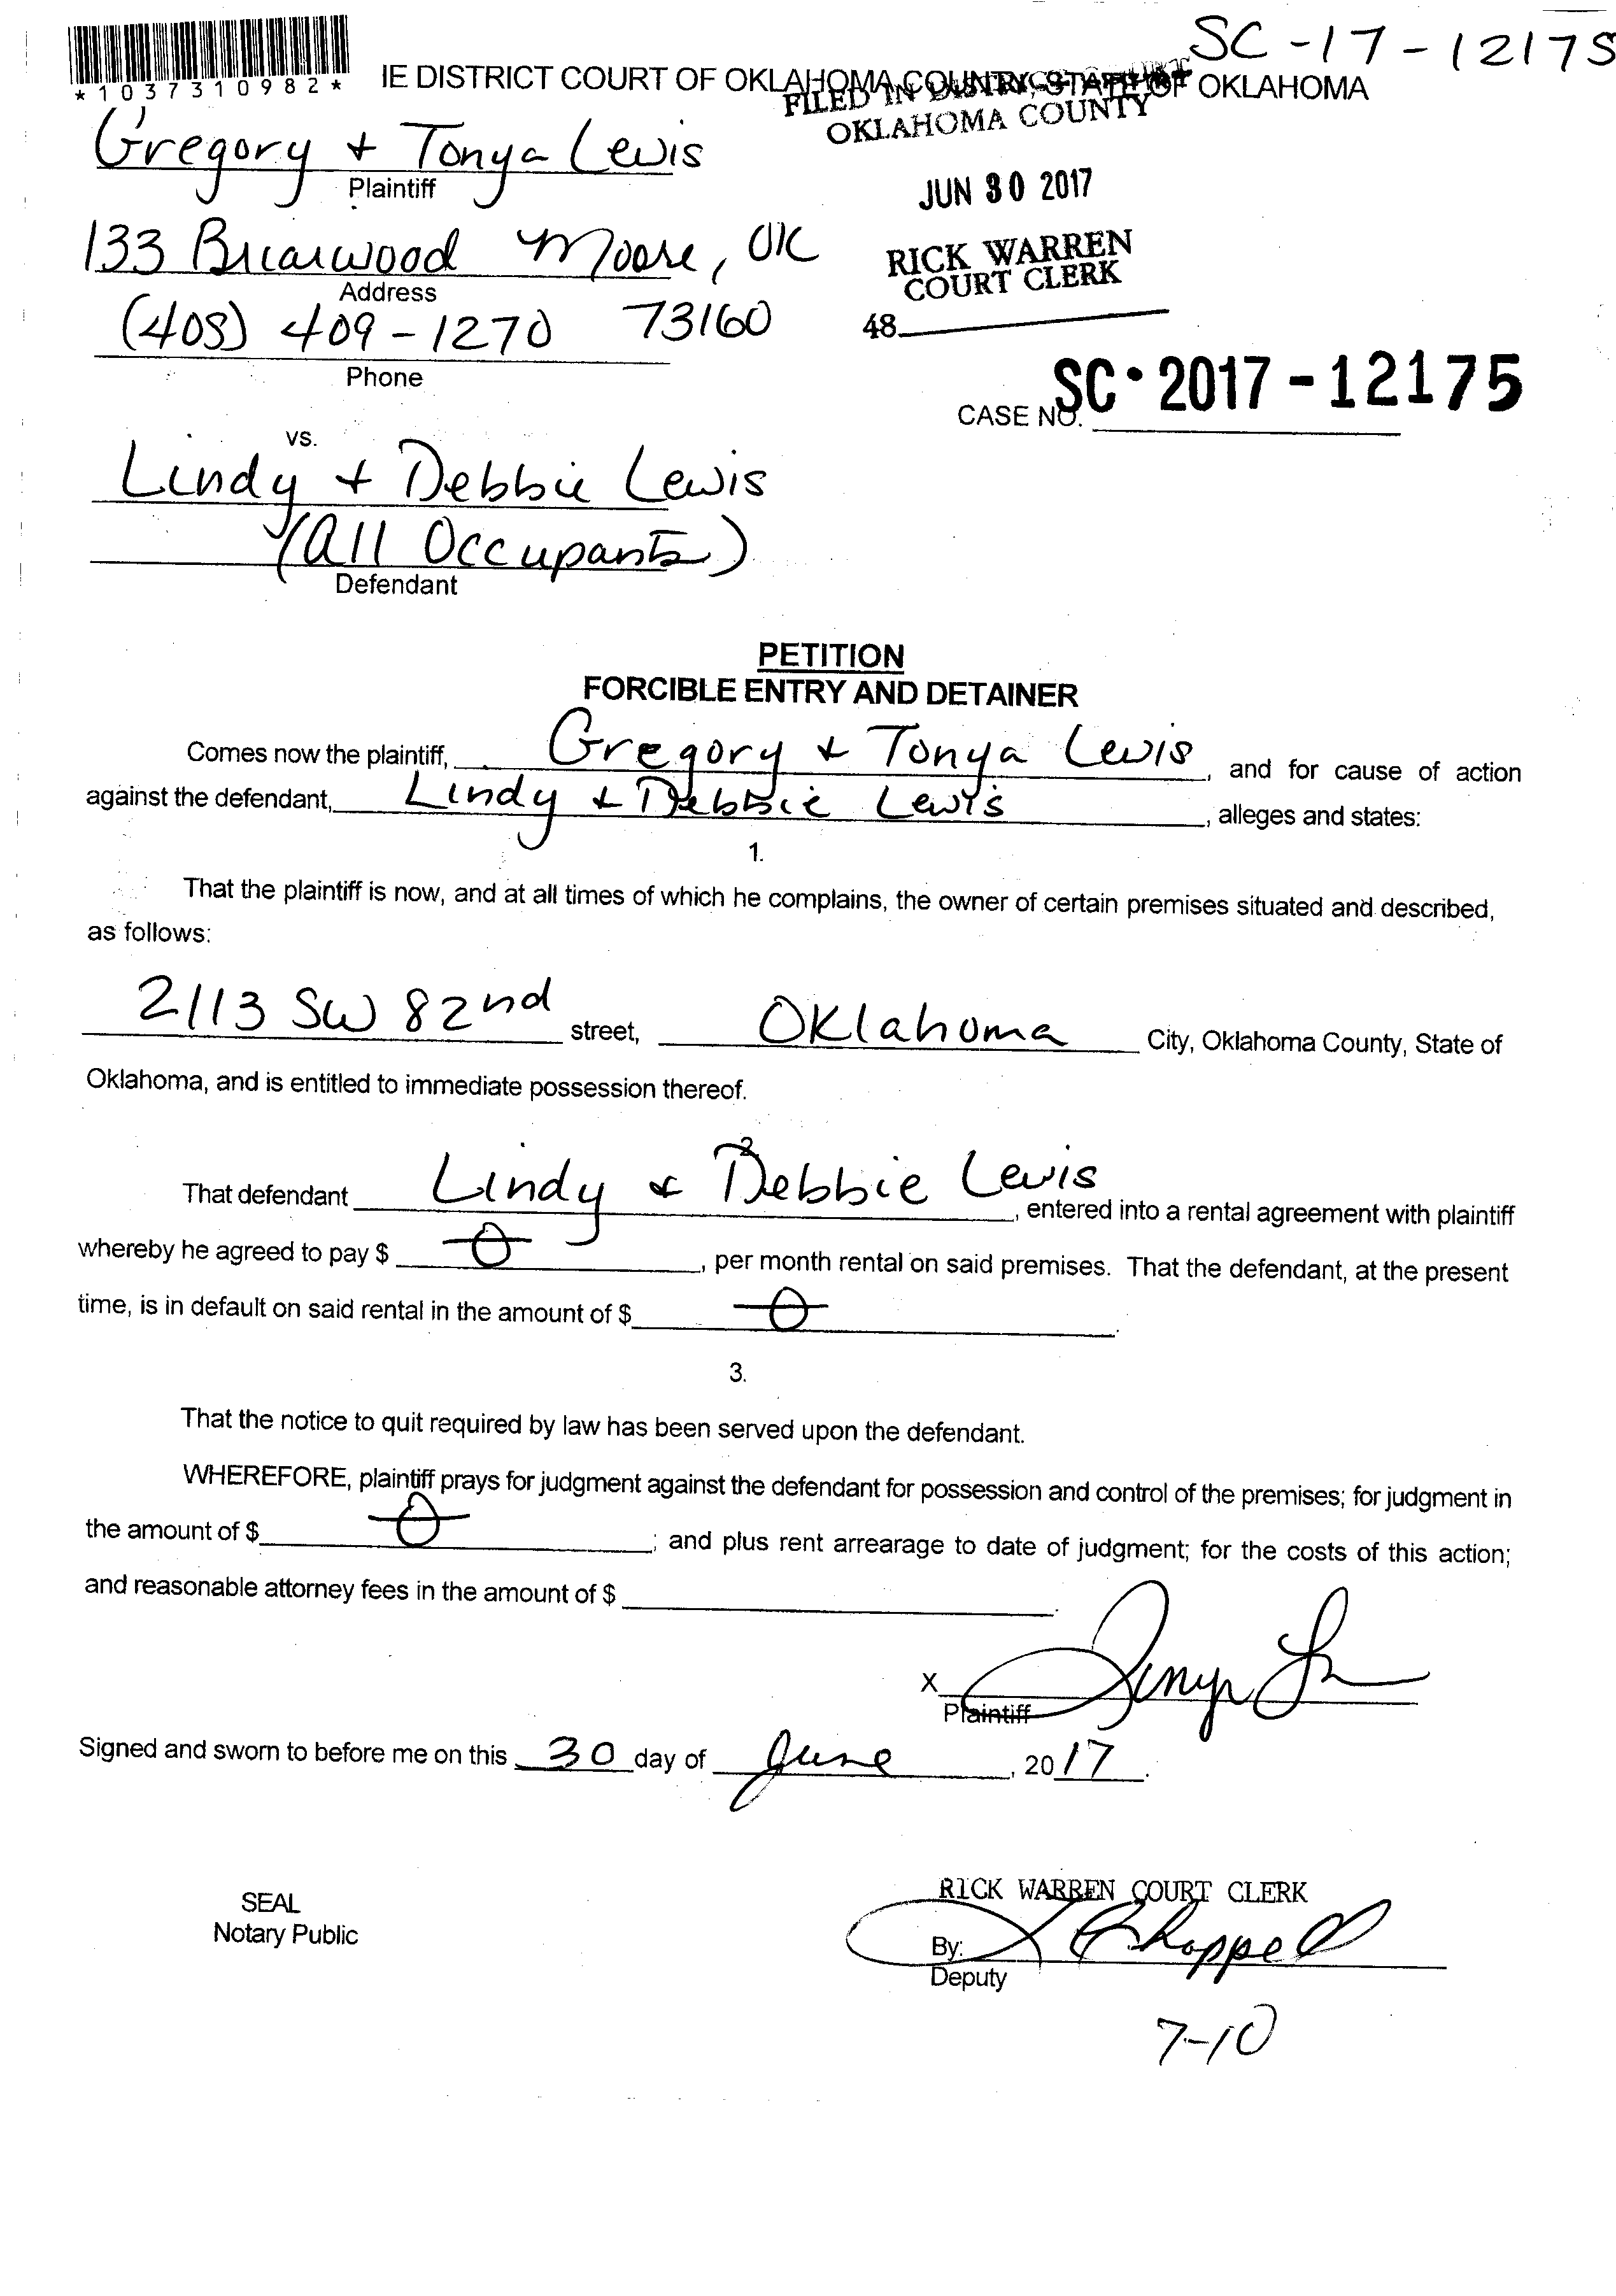 SC-17-12175
*1037310982*
IE DISTRICT COURT OF OKLAHOMA COUNTY, STATE OF OKLAHOMA
FILED IN DISTRICT COURT
OKLAHOMA COUNTY
Gregory + Tonya Lewis
Plaintiff
JUN 30 2017
133 Briarwood Moore, OK
Address
RICK WARREN
COURT CLERK
(405) 409-1270 73160
Phone
48
CASE NO. SC 2017-12175
vs.
Lindy + Debbie Lewis
(All Occupants)
Defendant
PETITION
FORCIBLE ENTRY AND DETAINER
Comes now the plaintiff, Gregory + Tonya Lewis, and for cause of action
against the defendant, Lindy + Debbie Lewis, alleges and states:
1.
That the plaintiff is now, and at all times of which he complains, the owner of certain premises situated and described,
as follows:
2113 SW 82nd street, Oklahoma City, Oklahoma County, State of
Oklahoma, and is entitled to immediate possession thereof.
2.
That defendant Lindy & Debbie Lewis, entered into a rental agreement with plaintiff
whereby he agreed to pay $ 0, per month rental on said premises. That the defendant, at the present
time, is in default on said rental in the amount of $ 0.
3.
That the notice to quit required by law has been served upon the defendant.
WHEREFORE, plaintiff prays for judgment against the defendant for possession and control of the premises; for judgment in
the amount of $ 0; and plus rent arrearage to date of judgment; for the costs of this action;
and reasonable attorney fees in the amount of $ .
X
Plaintiff
Signed and sworn to before me on this 30 day of June, 2017.
RICK WARREN COURT CLERK
SEAL
Notary Public
By: Chappell
Deputy
7-10